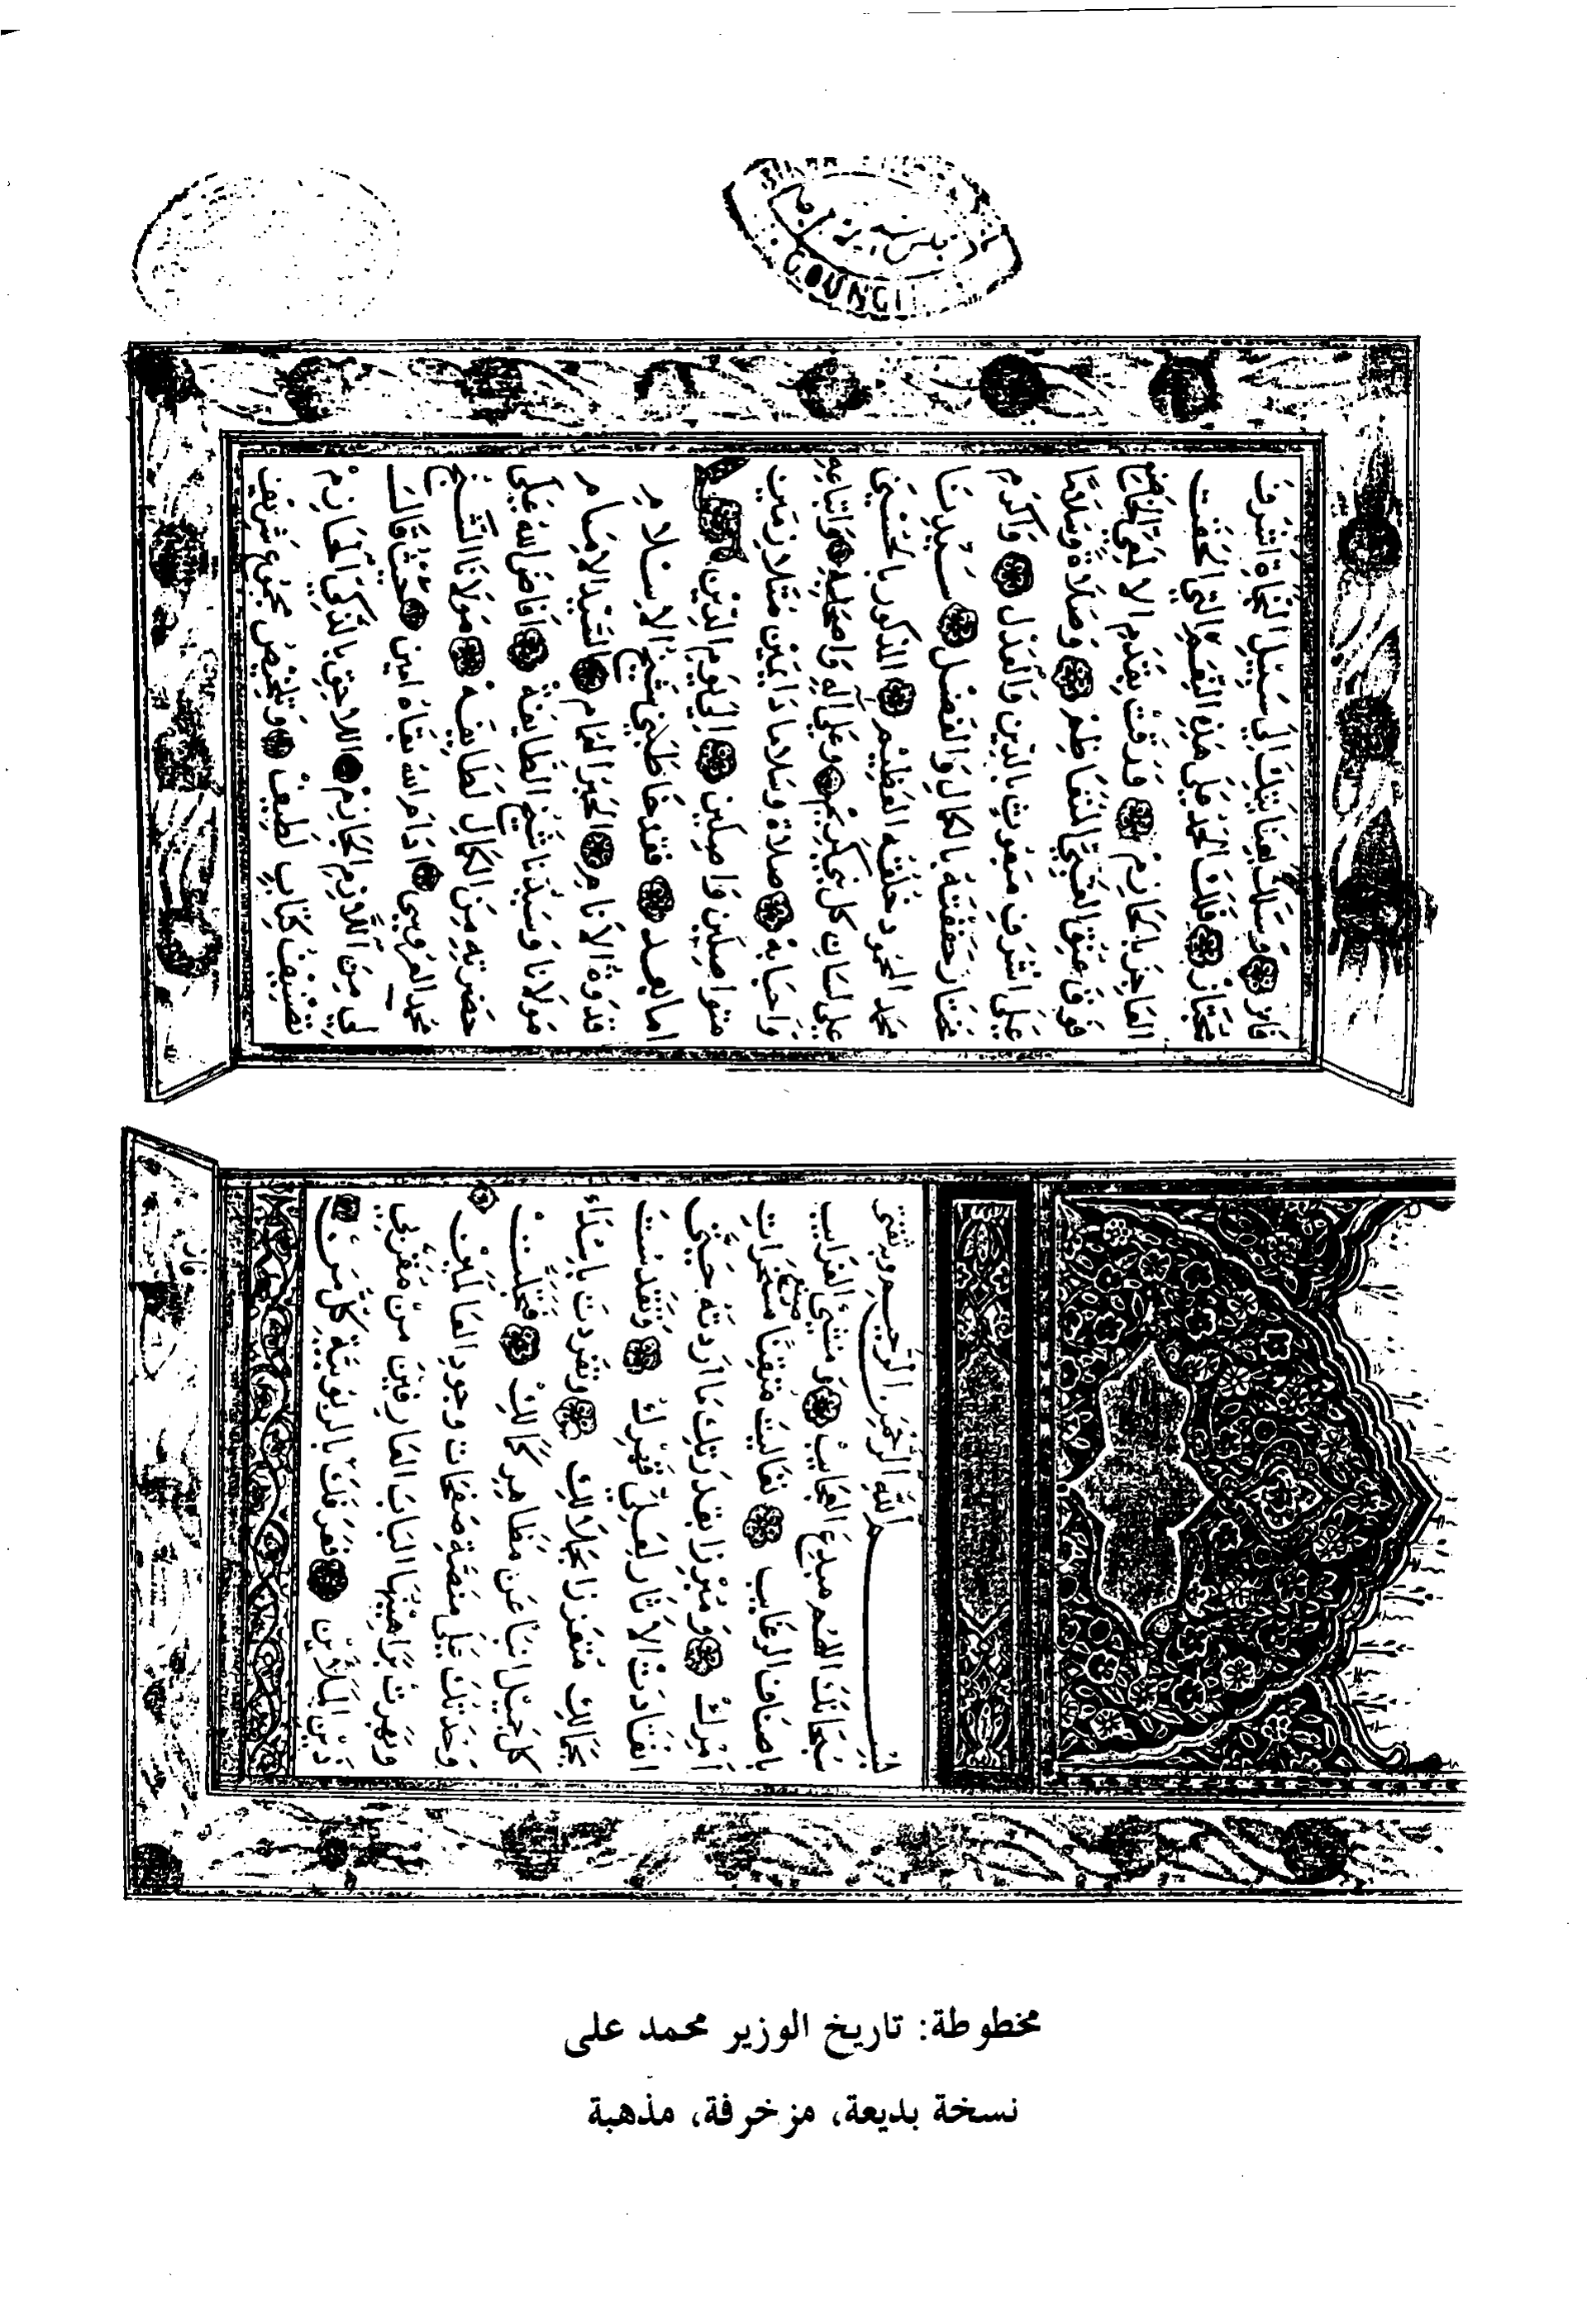 بسم الله الرحمن الرحيم وبه ثقتي
سبحانك اللهم مبدع العجائب ومنشئ الغرايب
باصناف الرغايب تعاليت متقنًا صنع مسخرات
امرك ومبرزا بقدرتك ما اردته حتى
انقادت الاثار لعلى قهرك وتقدست
بجمالك متعززا بجلالك وتفردت بابتداء
كل جميل انبأ عن مظاهر كمالك فتجلت
وحدتك على منصة صفحات وجود العالمين
وبهرت براهينها الباب العارفين من مقربى
فعرفك بالربوبية كل من
فائز وسلك بعنايتك الى سبيل النجاة اشرف
مجتاز فلك الحمد على هذه النعم التي الحقت
العاجز بالحازم فرقت بقدم
فوق عنق وصلاة وسلاما
على اشرف مبعوث بالدين والعدل واكرم
مختار حففته بالكمال والفضل سيدنا
محمد المحمود خلقه العظيم المذكور بالحسنى
على لسان كل نبي كريم وعلى اله واصحابه واتباعه
واحبابه صلاة وسلاما دايمين متلازمين
متواصلين واصلين الى يوم الدين
اما بعد فقد خاطبنى شيخ الاسلام
قدوة الانام الحبر الهمام السيد الامام
مولانا وسيدنا شيخ الطايفة افاض الله على
حضرته من الكمال لطايفه مولانا الشيخ
محمد العروسى ادام الله بقاه امين حيث قالت
لى من اللازم الجازم اللاحق بالذكى الحازم
تصنيف كتاب لطيف وتلخيص مجموع شريف
COUNCIL
مخطوطة: تاريخ الوزير محمد على
نسخة بديعة، مزخرفة، مذهبة